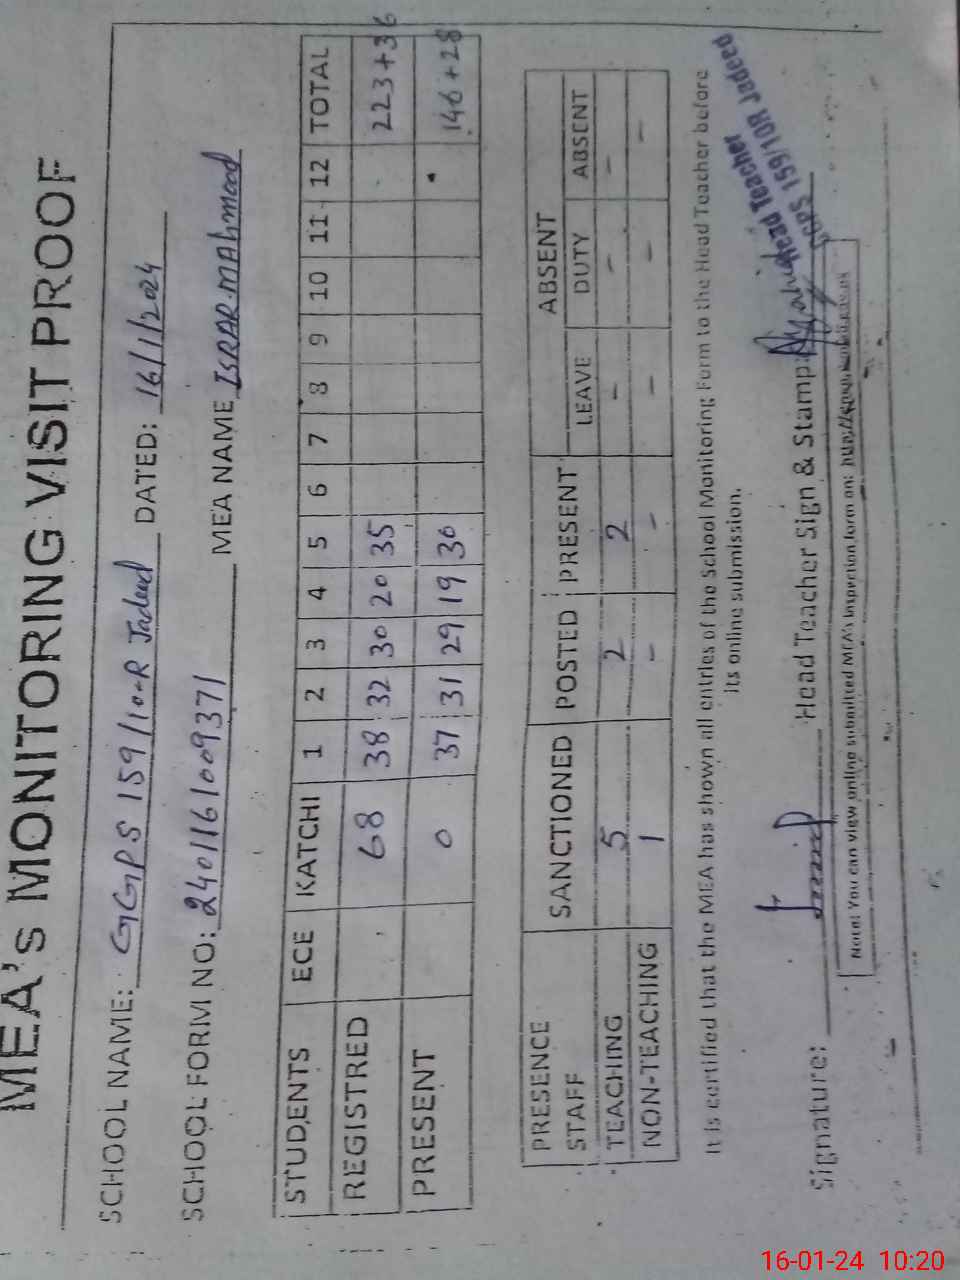 MEA's MONITORING VISIT PROOF
SCHOOL NAME: GGPS 159/10-R Jadeed DATED: 16/1/2024
SCHOOL FORM NO: 2401161009371 MEA NAME ISRAR MAhmood
STUDENTS ECE KATCHI 1 2 3 4 5 6 7 8 9 10 11 12 TOTAL
REGISTRED 68 38 32 30 20 35 223+36
PRESENT 0 37 31 29 19 30 146+28
PRESENCE SANCTIONED POSTED PRESENT ABSENT
STAFF LEAVE DUTY ABSENT
TEACHING 5 2 2 - - -
NON-TEACHING 1 - - - - -
It is certified that the MEA has shown all entries of the School Monitoring Form to the Head Teacher before
its online submission.
Signature: Head Teacher Sign & Stamp:
Head Teacher
GGPS 159/10R Jadeed
Note: You can view online submitted MEA's inspection form on:
16-01-24 10:20